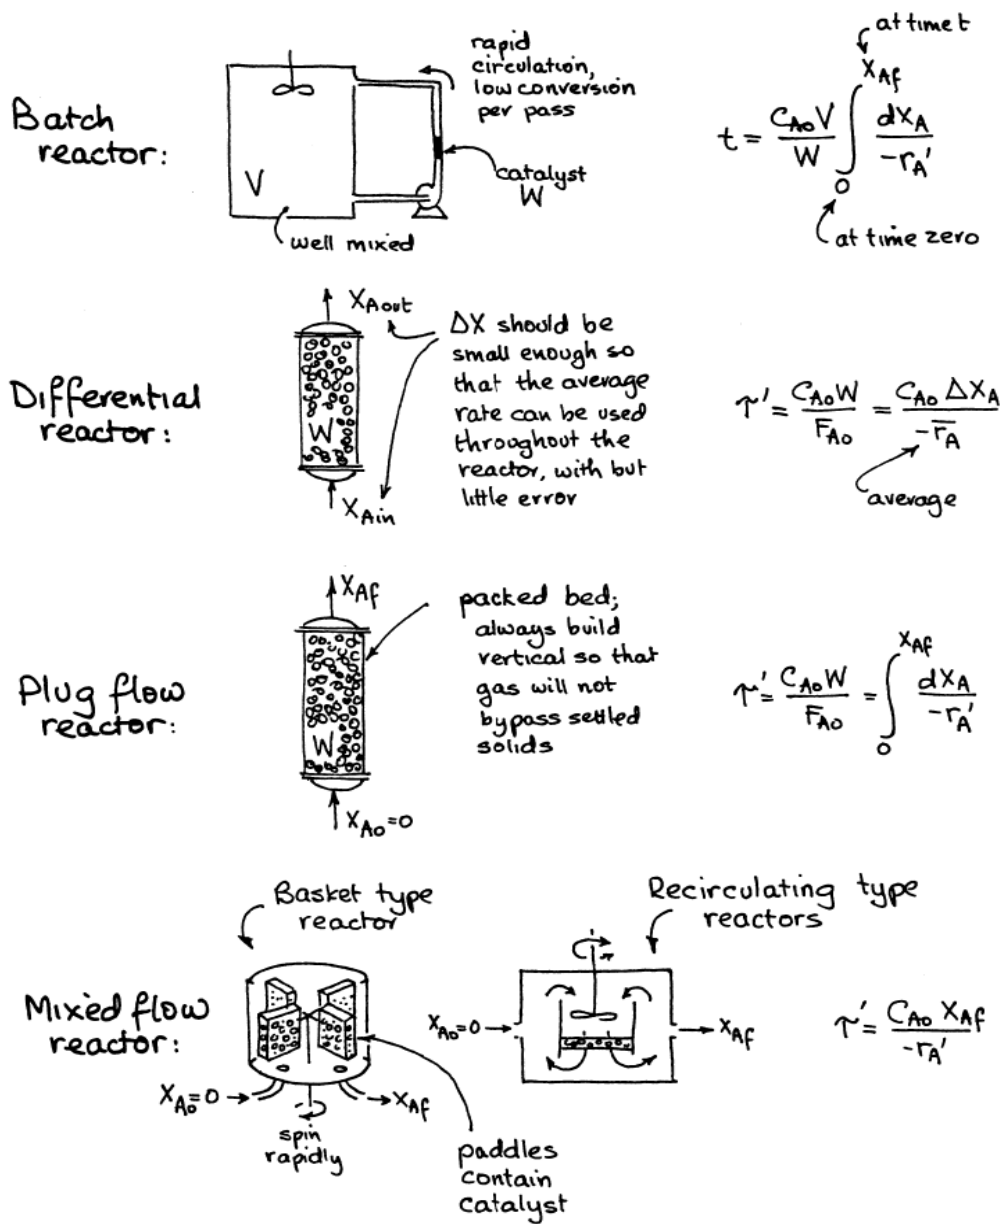 Batch
reactor:
V
well mixed
rapid
circulation,
low conversion
per pass
catalyst
W
at time t
t = C_A0 V / W ∫_0^{X_Af} dX_A / -r_A'
at time zero
Differential
reactor:
X_Aout
W
X_Ain
ΔX should be
small enough so
that the average
rate can be used
throughout the
reactor, with but
little error
τ' = C_A0 W / F_A0 = C_A0 ΔX_A / -r̅_A
average
Plug flow
reactor:
X_Af
W
X_A0 = 0
packed bed;
always build
vertical so that
gas will not
bypass settled
solids
τ' = C_A0 W / F_A0 = ∫_0^{X_Af} dX_A / -r_A'
Mixed flow
reactor:
Basket type
reactor
X_A0 = 0
X_Af
spin
rapidly
paddles
contain
catalyst
Recirculating type
reactors
X_A0 = 0
X_Af
τ' = C_A0 X_Af / -r_A'